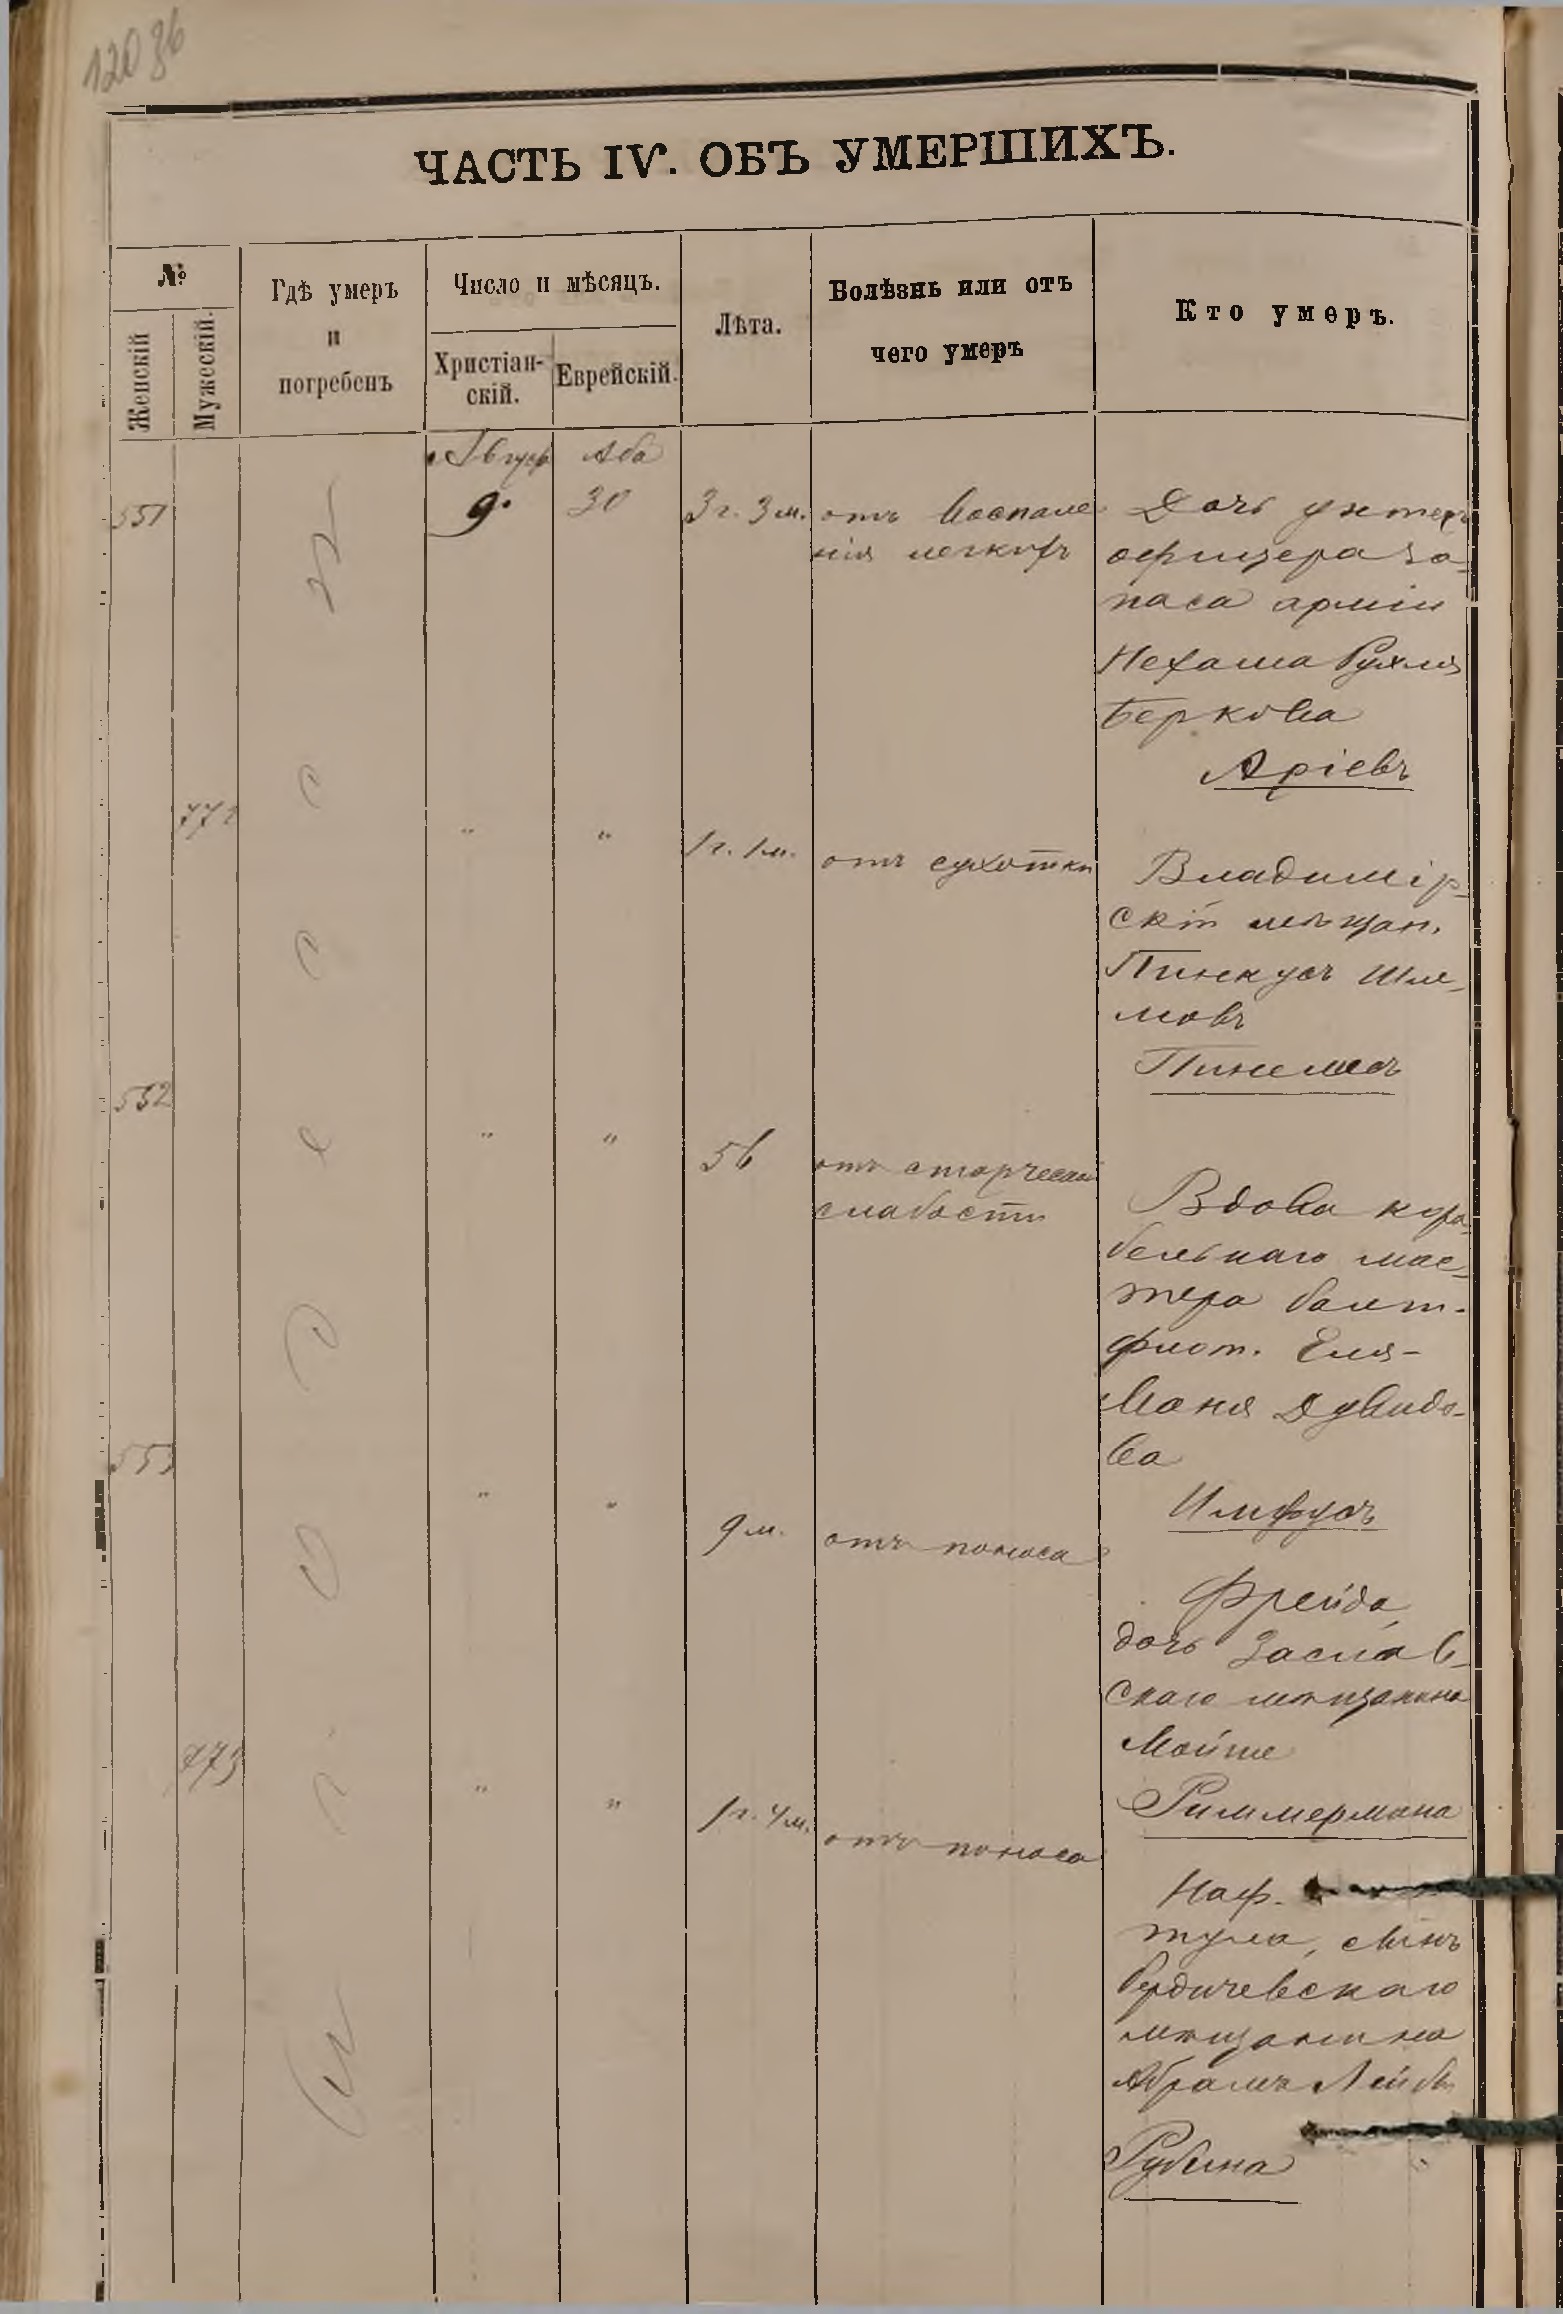 120 86
ЧАСТЬ IV. ОБЪ УМЕРШИХЪ.
№
Женскій
Мужескій.
Гдѣ умеръ
и
погребенъ
Число и мѣсяцъ.
Христіан-
скій.
Еврейскій.
Лѣта.
Болѣзнь или отъ
чего умеръ
Кто умеръ.
Август Аба
551
9. 30 3 г. 3 м. отъ воспале
нія легкихъ
Дочь унтеръ
офицера за-
паса арміи
Нехама Рухля
Беркова
Аріевъ
772
" " 1 г. 1 м. отъ сухотки
Владимір-
скій мѣщан.
Пинкусъ Шле-
мовъ
552
" " 56 отъ старческой
слабости
Вдова кора-
бельнаго мас-
тера балт.
флот. Еля-
Ваня Дувидо-
ва
553
" " 9 м. отъ поноса
Фрейда,
дочь Заслав-
скаго мѣщанина
Мойше
Риммермана
773
" " 1 г. 4 м. отъ поноса
Наф-
тула, сынъ
Бердичевскаго
мѣщанина
Абрамъ Лейбы
Рубина